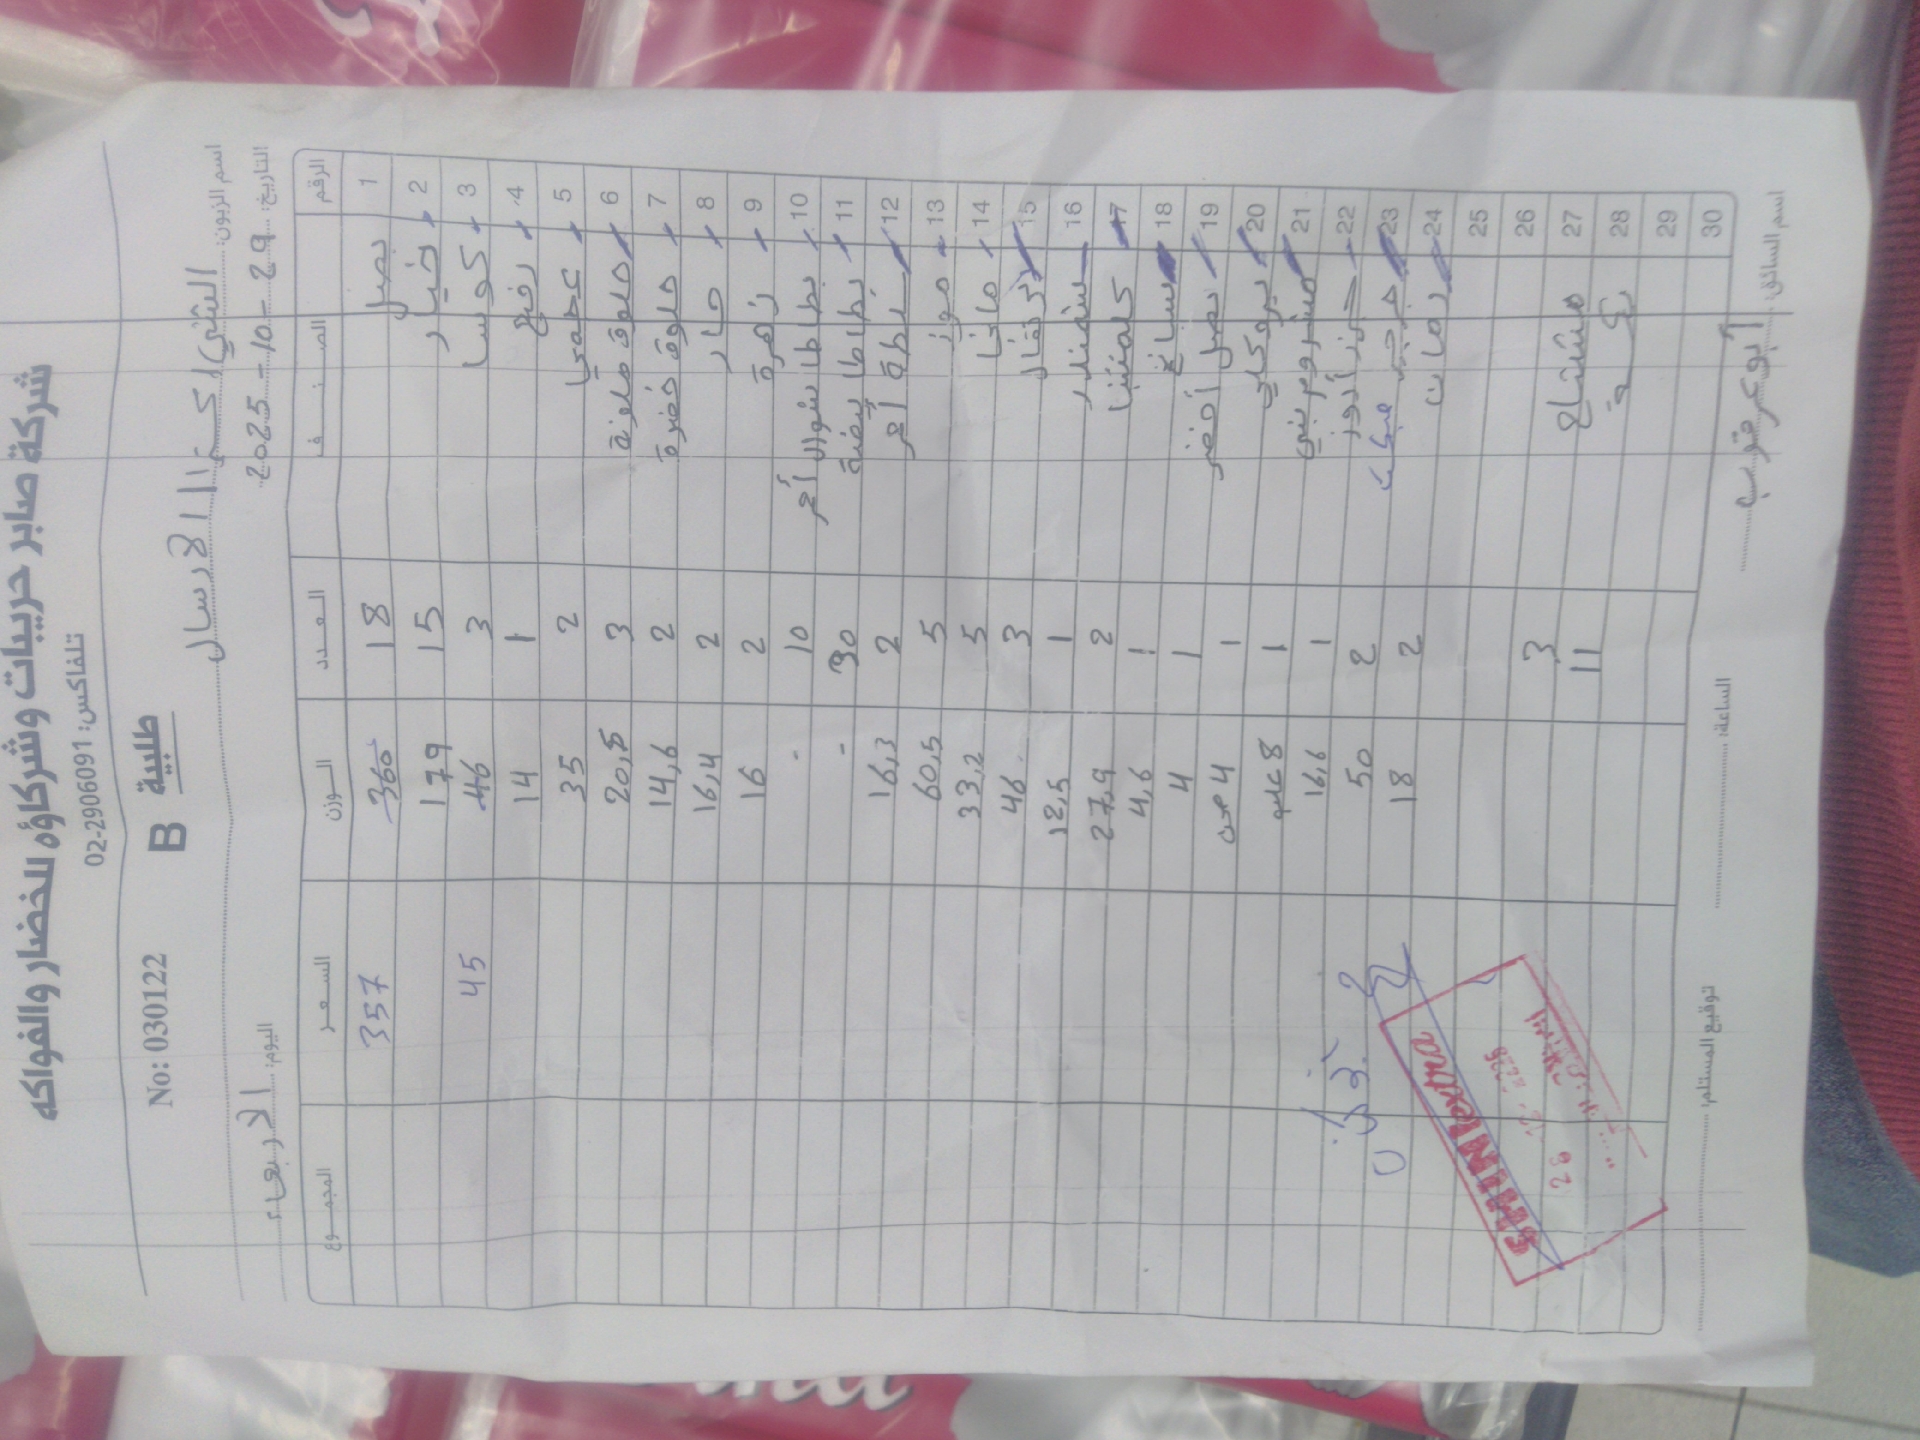 شركة صابر حريبات وشركاؤه للخضار والفواكه
تلفاكس: 02-2906091
No: 030122 B طلبية
اسم الزبون: الشني اكسترا الارسال
التاريخ: 29-10-2025 اليوم: الاربعاء
الرقم الصنف العدد الوزن السعر المجموع
1 بصل 18 360 357
2 خيار 15 179
3 كوسا 3 46 45
4 رفيع 1 14
5 عجمي 2 35
6 حلوة ملونة 3 20,5
7 حلوة خضرة 2 14,6
8 حار 2 16,4
9 زهرة 2 16
10 بطاطا شوال أحمر 10 -
11 بطاطا بيضة 30 -
12 بطة أحمر 2 16,3
13 موز 5 60,5
14 مانجا 5 33,2
15 برتقال 3 46
16 شمندر 1 12,5
17 كلمنتينا 2 27,9
18 سبانخ 1 4,6
19 بصل أخضر 1 4
20 بروكلي 1 4 صحن
21 مشروم بني 1 8 علبه
22 جزر أدوز 1 16,6
23 2 50
24 رمان 2 18
25
26
27 مشتاح 3
28 11
29
30
اسم السائق: أبو عرقوب الساعة: توقيع المستلم:
SHINI extra
28 10 2025